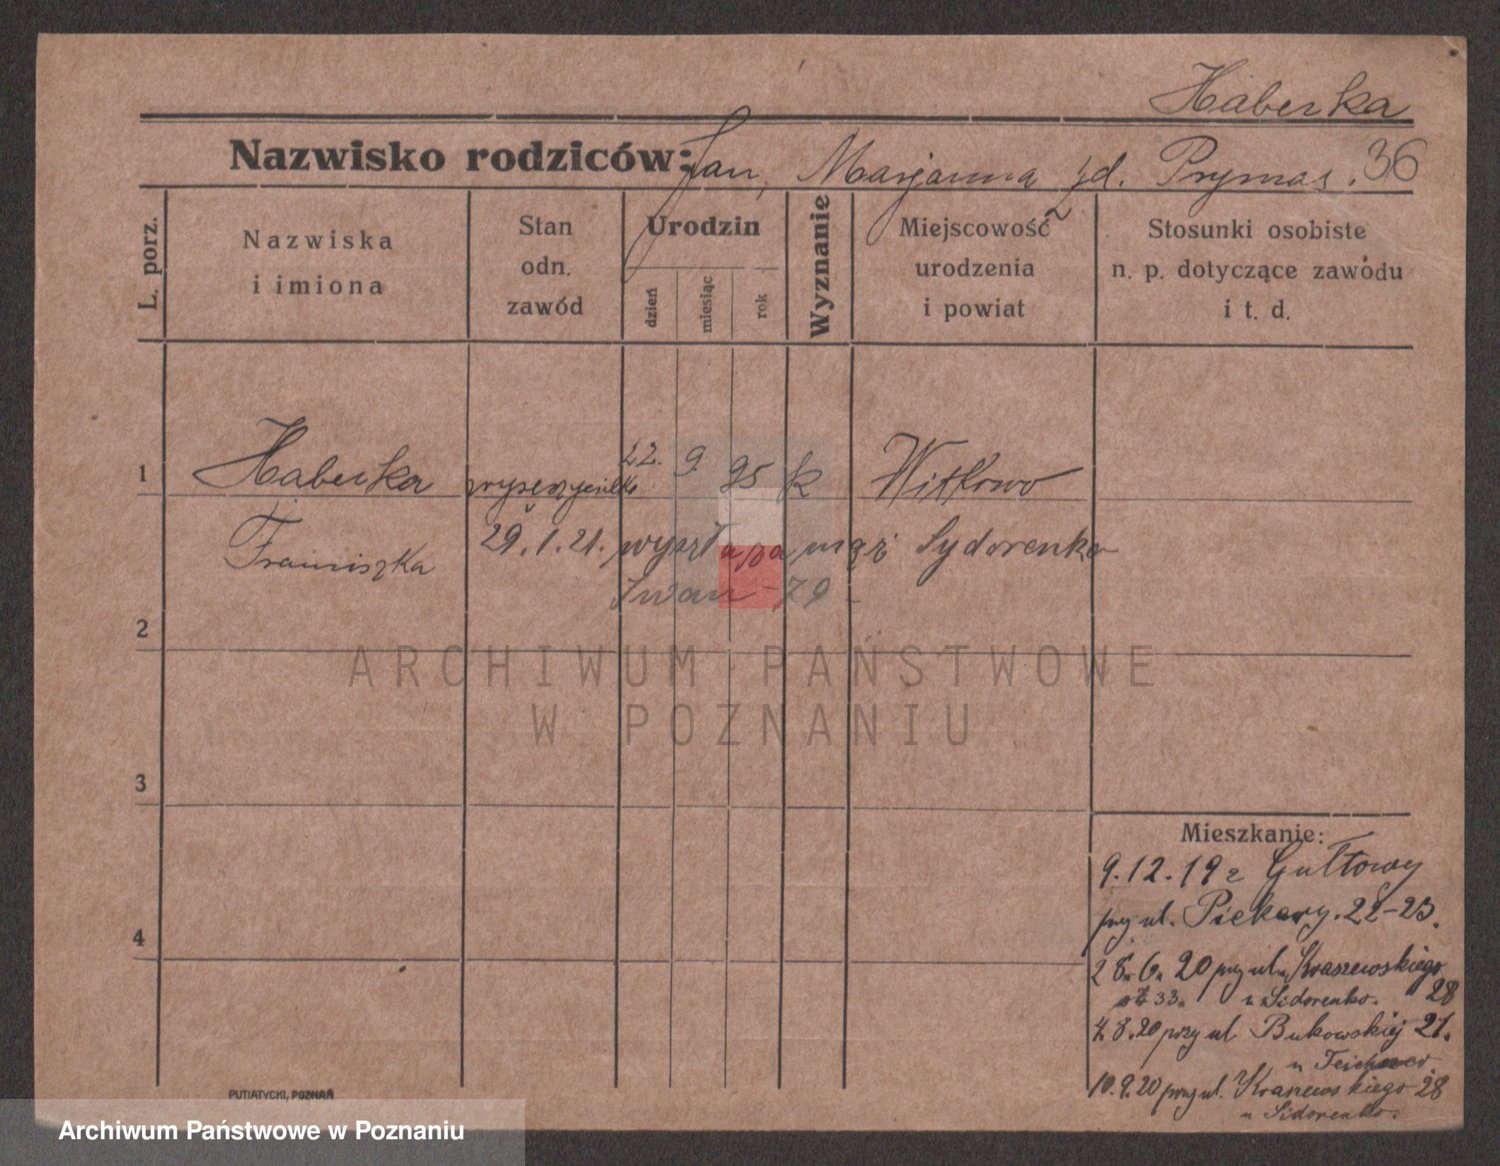 Haberka
Nazwisko rodziców: Jan, Marjanna zd. Prymas. 36
L. porz.
Nazwiska i imiona
Stan odn. zawód
Urodzin
dzień
miesiąc
rok
Wyznanie
Miejscowość urodzenia i powiat
Stosunki osobiste n. p. dotyczące zawodu i t. d.
1 Haberka 22. 9. 95 k Witkowo
Franciszka 29.1.21. wyszła za mąż Sydorenko
Iwan - 79 -
2
ARCHIWUM PAŃSTWOWE
W POZNANIU
3
4
Mieszkanie:
9.12.19 z Gułtowy
przy ul. Piekary. 22-23.
28. 6. 20 przy ul. Kraszewskiego 28
u Sidorenko.
4.8.20 przy ul Bukowskiej 21.
10.9.20 przy ul. Kraszewskiego 28
u Sidorenko.
PUTIATYCKI, POZNAŃ
Archiwum Państwowe w Poznaniu